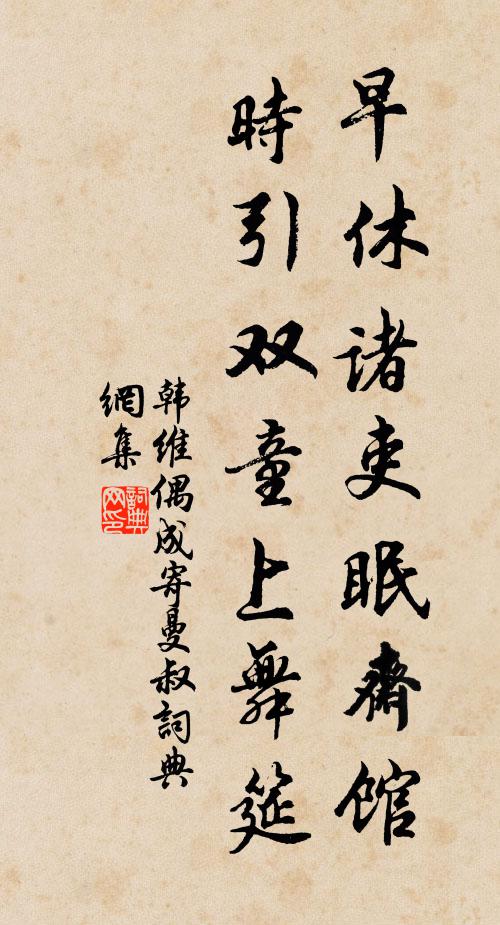 早休诸吏眠斋馆
時引双童上舞筵
韩维偶成寄曼叔詞典
網集
詞典
网印